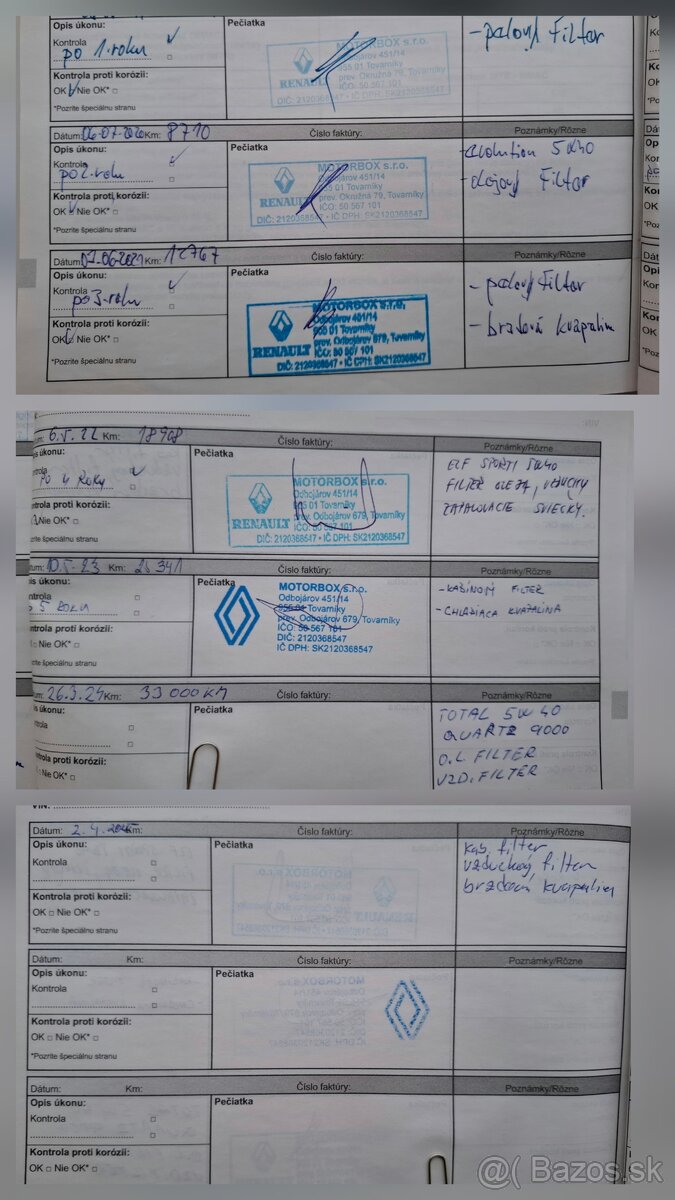 Opis úkonu:
Pečiatka
- palový Filter
Kontrola
po 1. roku
MOTORBOX s.r.o.
451/14
955 01 Tovarníky
prev. Okružná 79, Tovarníky
RENAULT
DIČ: 2120368547 • IČ DPH: SK2120368547
Kontrola proti korózii:
OK Nie OK*
*Pozrite špeciálnu stranu
Dátum: 06-07-2020 Km: 8710
Číslo faktúry:
Poznámky/Rôzne
Opis úkonu:
Pečiatka
- evolution 5W40
- olejový Filter
Kontrola
po 2. roku
MOTORBOX s.r.o.
Odbojárov 451/14
955 01 Tovarníky
prev. Okružná 79, Tovarníky
IČO: 50 567 101
RENAULT
DIČ: 2120368547 • IČ DPH: SK2120368547
Kontrola proti korózii:
OK Nie OK*
*Pozrite špeciálnu stranu
Dátum: 07-06-2021 Km: 12767
Číslo faktúry:
Poznámky/Rôzne
Opis úkonu:
Pečiatka
- palový Filter
- brzdová kvapalin
Kontrola
po 3. roku
MOTORBOX s.r.o.
Odbojárov 451/14
955 01 Tovarníky
prev. Odbojárov 679, Tovarníky
IČO: 50 567 101
RENAULT
DIČ: 2120368547 • IČ DPH: SK2120368547
Kontrola proti korózii:
OK Nie OK*
*Pozrite špeciálnu stranu
6.5.22 Km: 18908
Číslo faktúry:
Poznámky/Rôzne
úkonu:
Pečiatka
ELF SPORTI 5W40
FILTER OLEJA, VZDUCHU
ZAPAĽOVACIE SVIEČKY.
PO 4 ROKU
MOTORBOX s.r.o.
Odbojárov 451/14
955 01 Tovarníky
prev. Odbojárov 679, Tovarníky
IČO: 50 567 101
RENAULT
DIČ: 2120368547 • IČ DPH: SK2120368547
ntrola proti korózii:
Nie OK*
zrite špeciálnu stranu
10.5.23 Km: 25 341
Číslo faktúry:
Poznámky/Rôzne
is úkonu:
Pečiatka
- KABÍNOVÝ FILTER
- CHLADIACA KVAPALINA
5 ROKU
MOTORBOX s.r.o.
Odbojárov 451/14
955 01 Tovarníky
prev. Odbojárov 679, Tovarníky
IČO: 50 567 101
DIČ: 2120368547
IČ DPH: SK2120368547
ntrola proti korózii:
Nie OK*
zrite špeciálnu stranu
26.3.24 Km: 33 000 KM
Číslo faktúry:
Poznámky/Rôzne
is úkonu:
Pečiatka
TOTAL 5W40
QUARTZ 9000
OL. FILTER
VZD. FILTER
ntrola
ntrola proti korózii:
Nie OK*
zrite špeciálnu stranu
VIN:
Dátum: 2.4.2025 Km:
Číslo faktúry:
Poznámky/Rôzne
Opis úkonu:
Pečiatka
kab. filter
vzduchový filter
brzdová kvapalin
Kontrola
Kontrola proti korózii:
OK Nie OK*
*Pozrite špeciálnu stranu
Dátum: Km:
Číslo faktúry:
Poznámky/Rôzne
Opis úkonu:
Pečiatka
Kontrola
Kontrola proti korózii:
OK Nie OK*
*Pozrite špeciálnu stranu
Dátum: Km:
Číslo faktúry:
Poznámky/Rôzne
Opis úkonu:
Pečiatka
Kontrola
Kontrola proti korózii:
OK Nie OK*
@( Bazos.sk